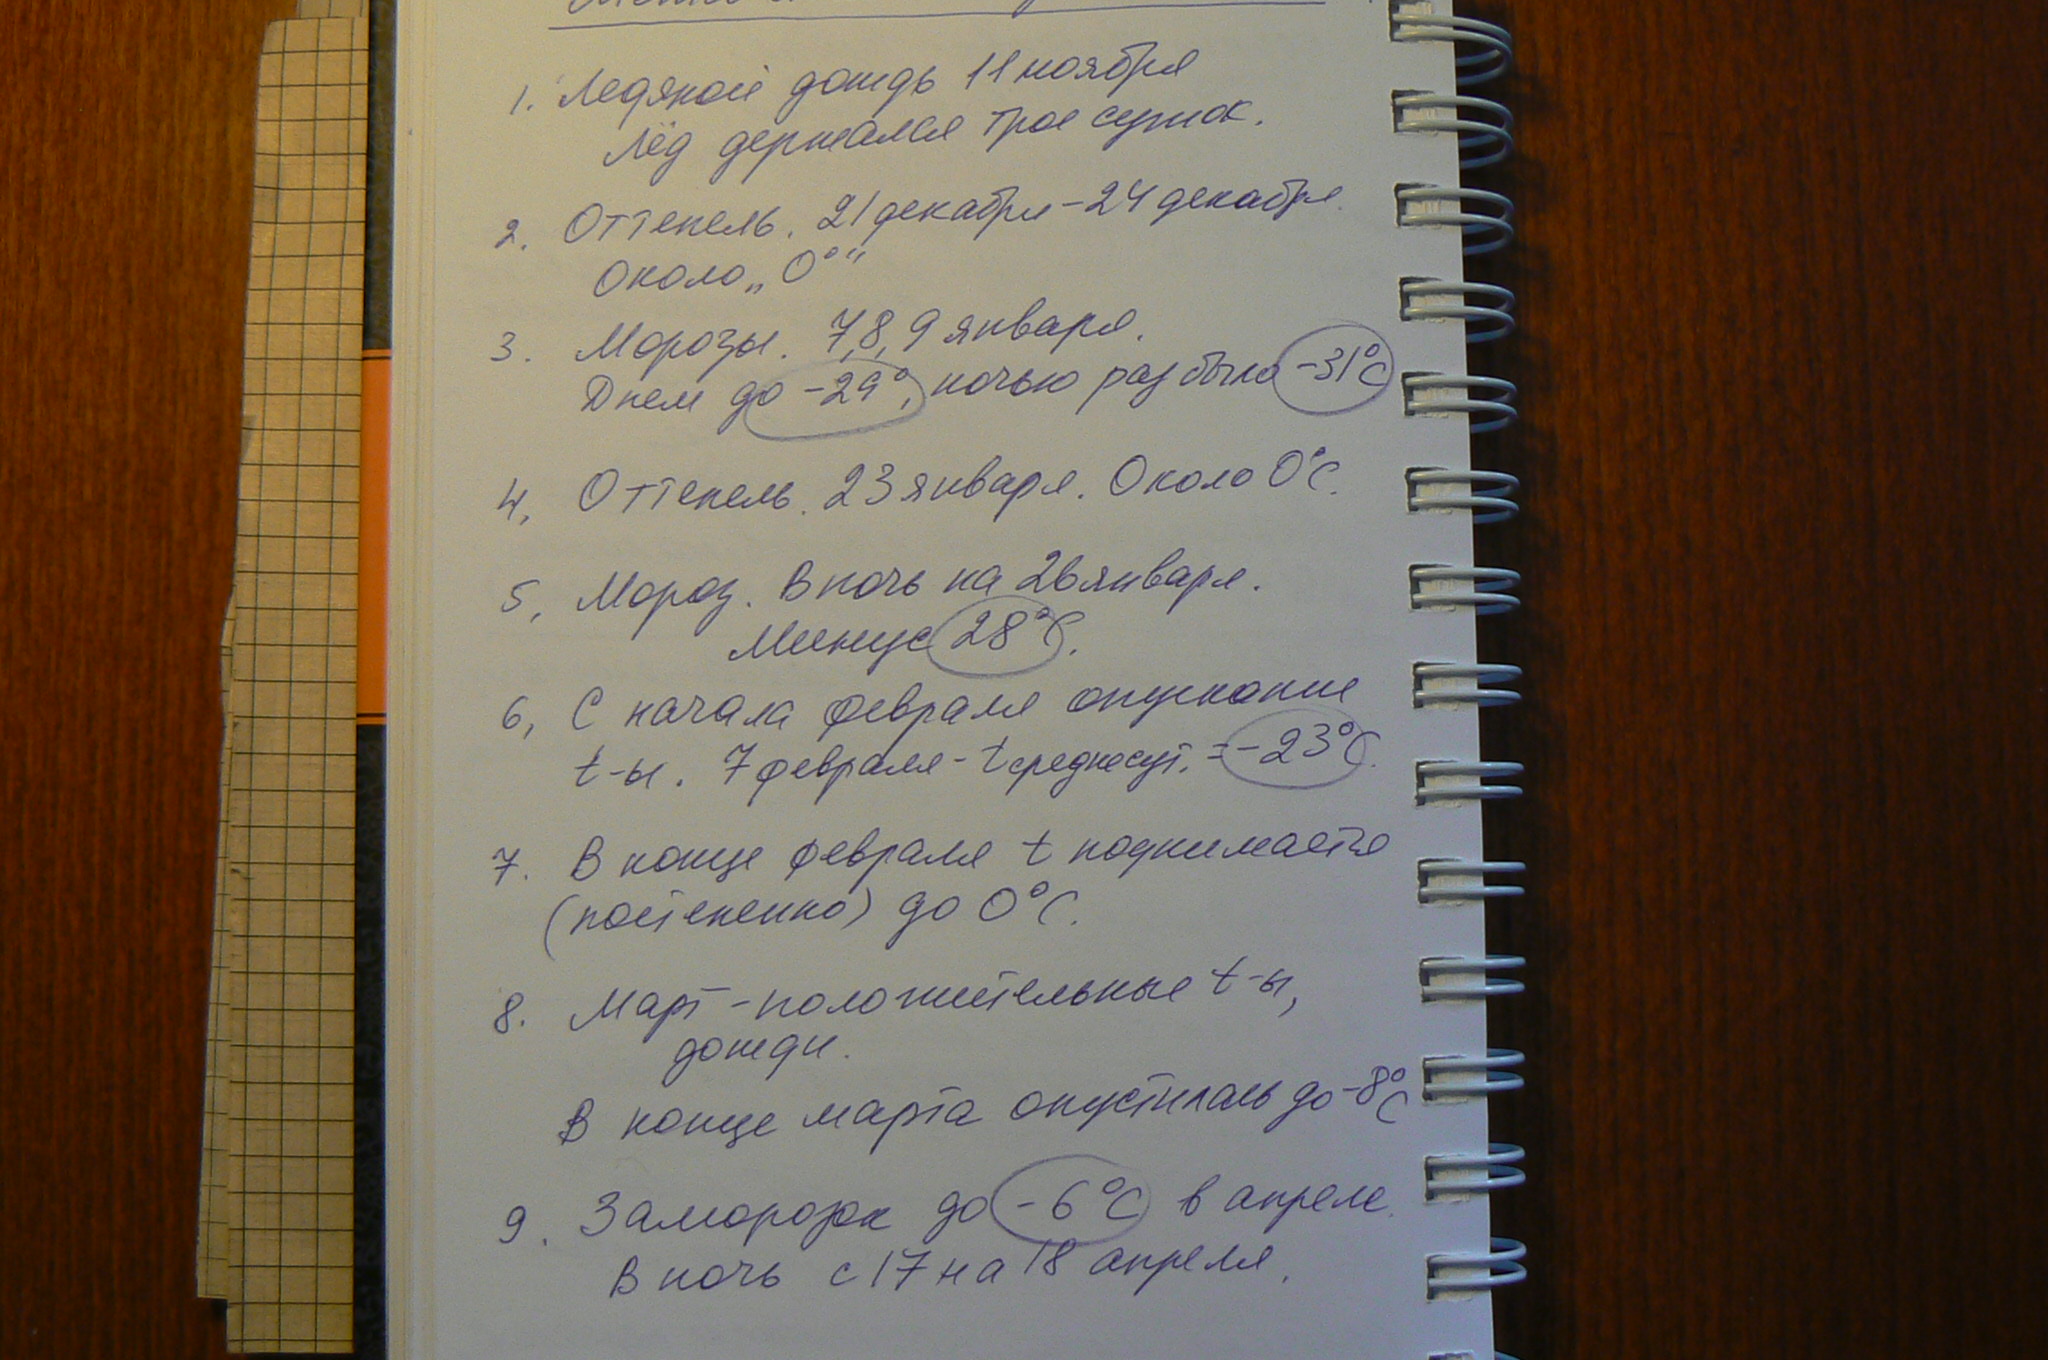 1. Ледяной дождь 11 ноября
Лёд держался трое суток.
2. Оттепель. 21 декабря - 24 декабря.
Около „0°“
3. Морозы. 7, 8, 9 января.
Днем до -29°, ночью раз было -31°C
4, Оттепель. 23 января. Около 0°C.
5, Мороз. В ночь на 26 января.
Минус 28°C.
6, С начала февраля опускание
t-ы. 7 февраля - t среднесут. = -23°C.
7. В конце февраля t поднимается
(постепенно) до 0°C.
8. Март - положительные t-ы,
дожди.
В конце марта опустилась до -8°C
9. Заморозок до -6°C в апреле.
В ночь с 17 на 18 апреля.